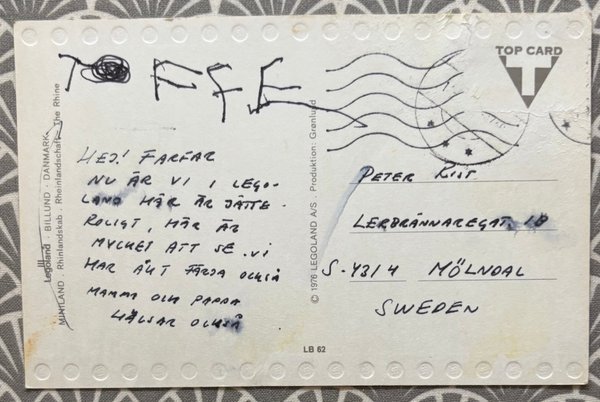 TOFFE
TOP CARD
T
HEJ! FARFAR
NU ÄR VI I LEGO-
LAND HÄR ÄR JÄTTE-
ROLIGT, HÄR ÄR
MYCKET ATT SE. VI
HAR ÅKT FÄRJA OCKSÅ
MAMMA OCH PAPPA
HÄLSAR OCKSÅ
Legoland · BILLUND · DANMARK
MINILAND · Rhinlandskab · Rheinlandschaft · The Rhine
© 1976 LEGOLAND A/S · Produktion: Grønlund
PETER
LERBRÄNNAREGAT. 1B
S-4314 MÖLNDAL
SWEDEN
LB 62